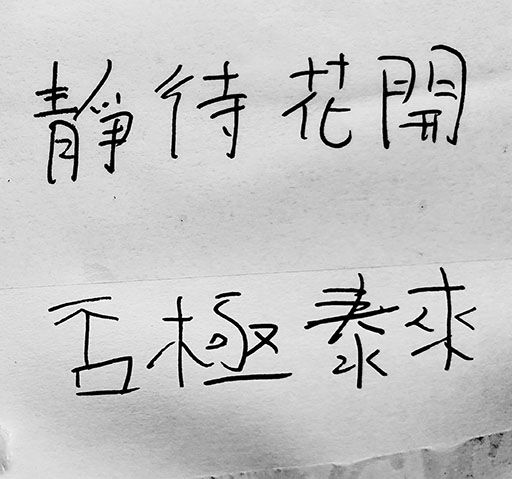 靜待花開
否極泰來